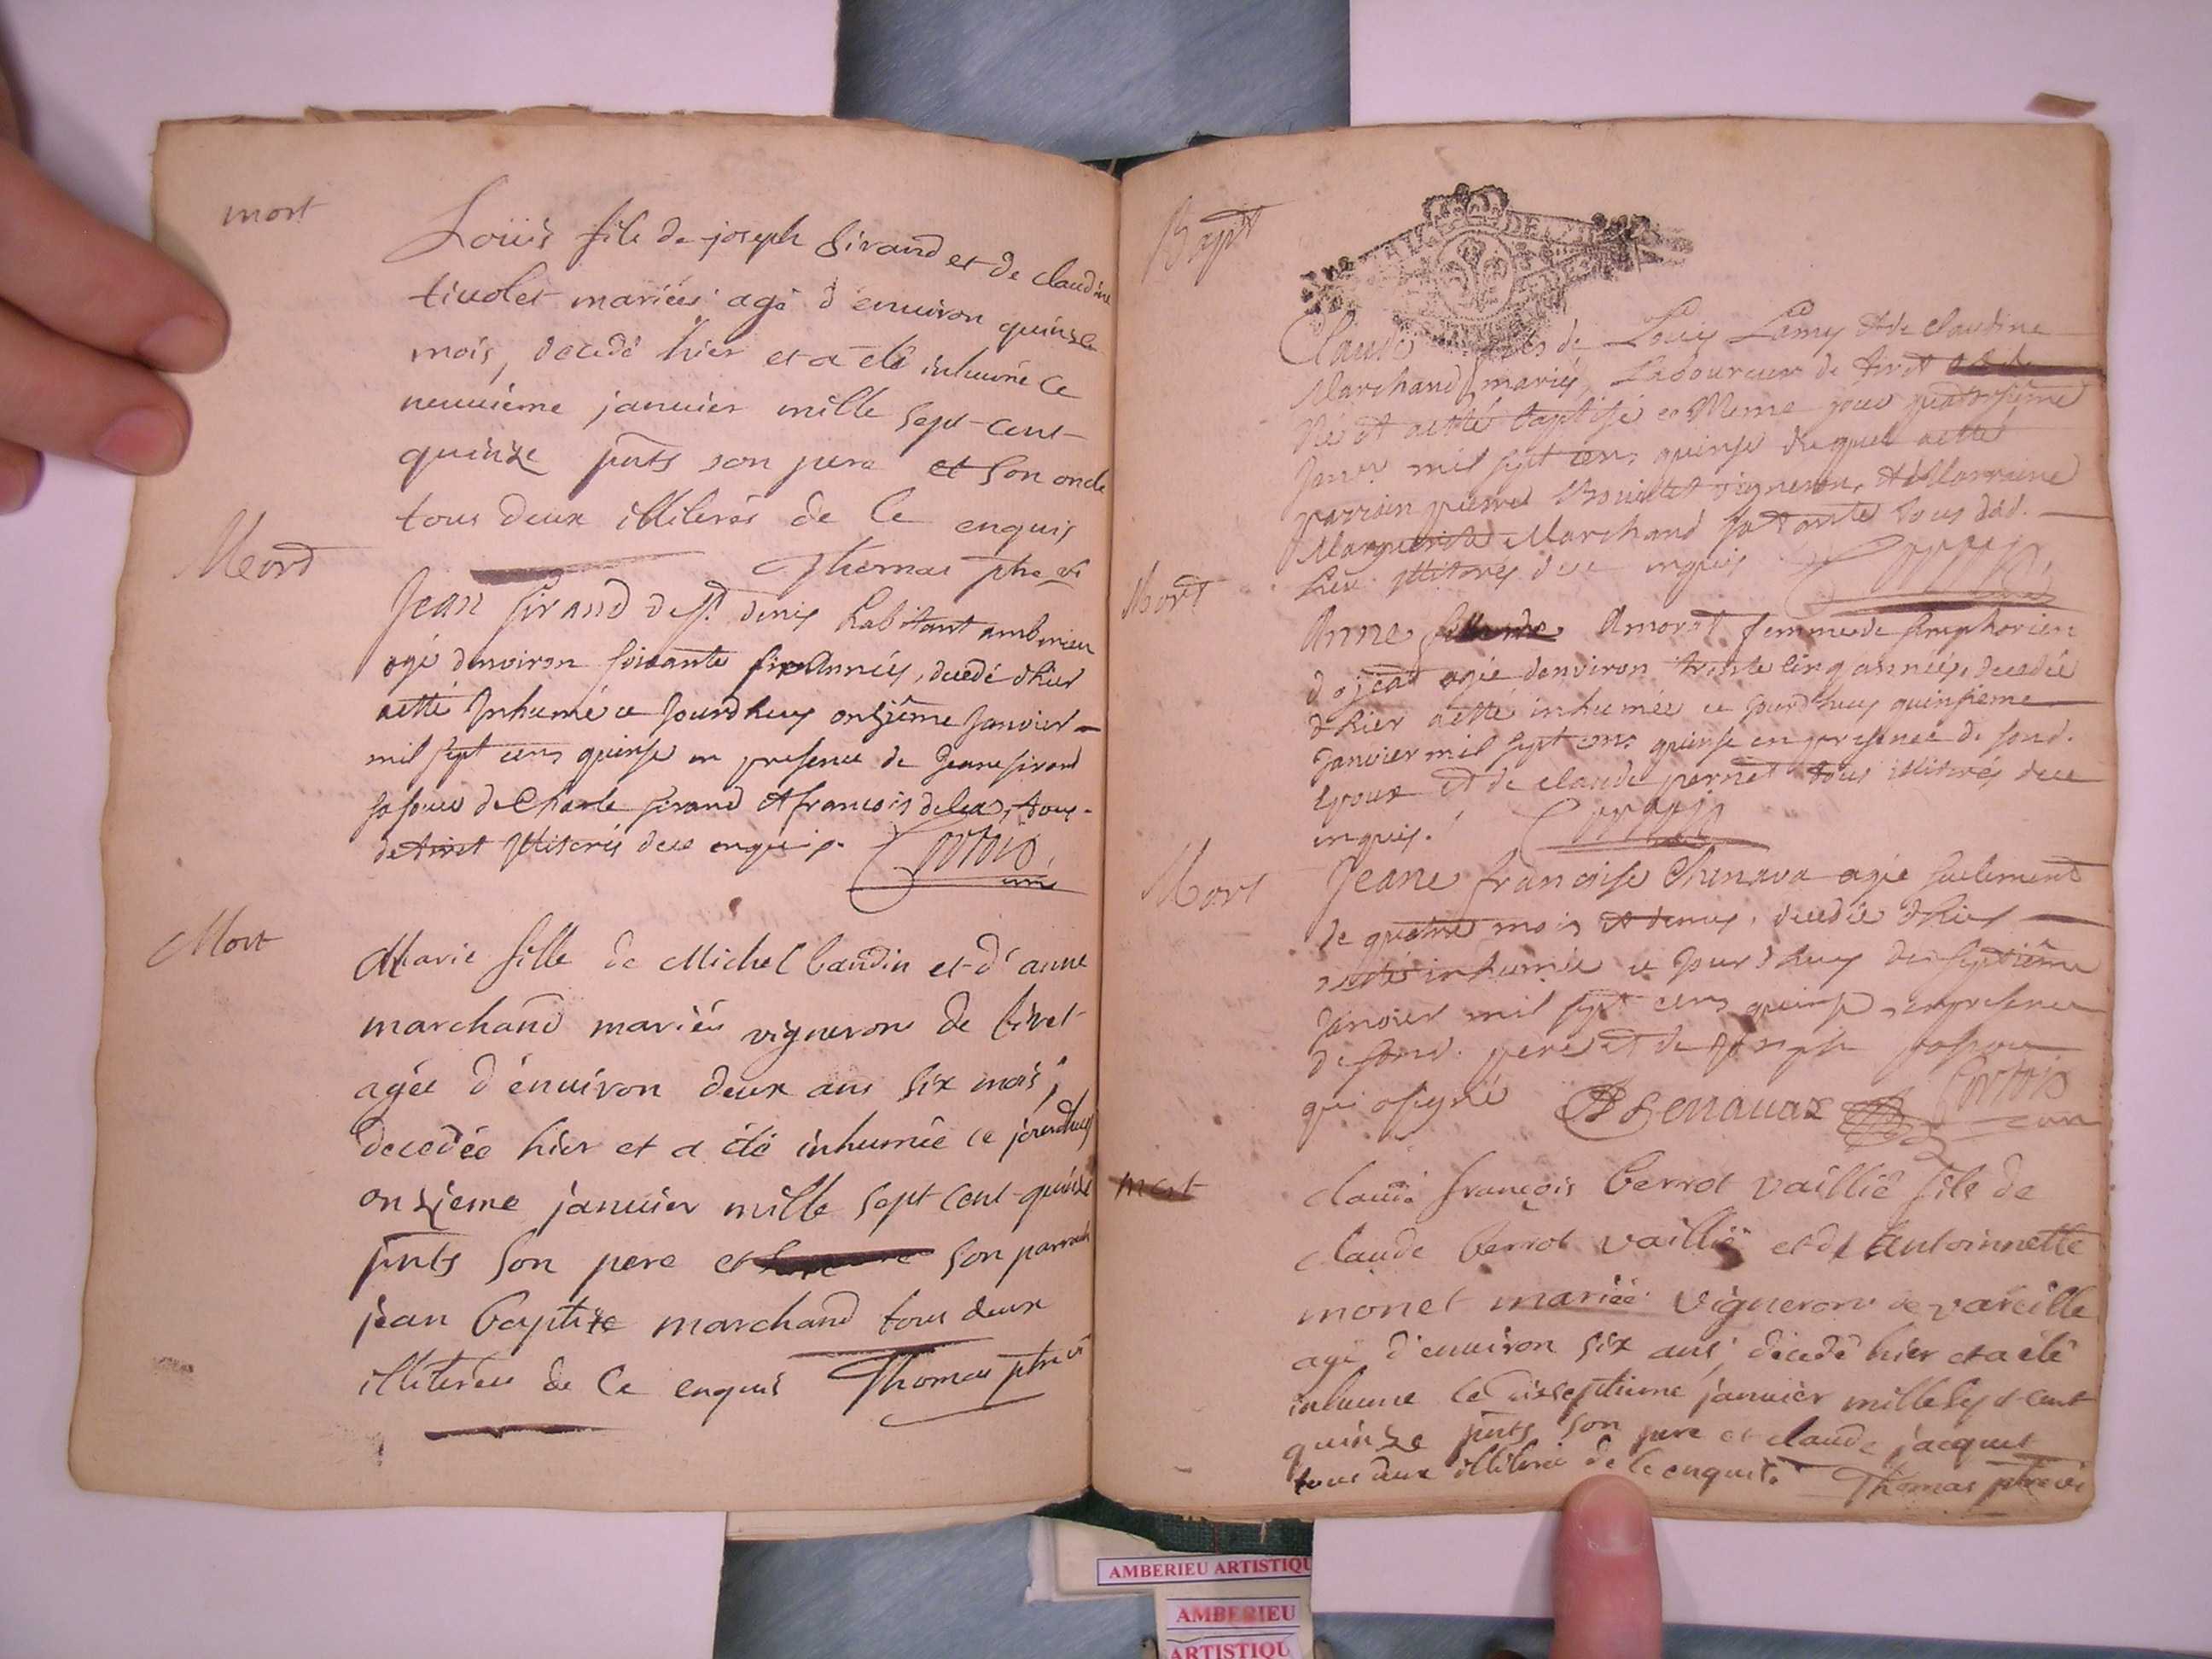 mort
Loüis fils de joseph Sirand et de claudine
tivolet mariés agé d'environ quinze
mois, decedé hier et a eté inhumé ce
neuvième janvier mille sept-cent-
quinze pnts son pere et son oncle
tous deux illiterés de ce enquis
Thomas ptre vi
Mord
Jean Sirand de St. denis habitant amberieu
agé denviron soixante six Années, decedé dhier
aetté Inhumé ce Jourdhuy onzième Janvier
mil sept cens quinse en presence de Jeane sirand
de Charle sirand et francois tous
de tiret Illiterés dece enquis. Cortois
curé
Mort
Marie fille de Michel baudin et d'anne
marchand mariés vigneron de tivet
agée d'énuiron deux ans six mois,
decedée hier et a été inhumée ce jourdhuy
onzieme janvier mille sept cent quinze
pnts son pere et son parrain
jean baptiste marchand tous deux
illiterés de ce enquis Thomas ptre vi
Bapt
Claude de Louis Lamy et de claudine
Marchand mariés, Laboureur de tiret
Né et aetté baptisé ce Meme jour quatorsième
Janvr mil sept cens quinse duquel aetté
parrain pierre vigneron, et Marraine
Marguerite Marchand sa tante tous dud.
Lieu Illiterés dece enquis
Mort
Anne Amorat femme de simphorien
dojeat agée denviron trente cinq années, decedée
dhier aetté inhumée ce jourdhuy quinsieme
Janvier mil sept cens quinse en presence de sond.
epoux et de claude pernet tous illiterés dece
enquis.
Mort
Jeane francoise Chenava agée seulement
de quatre mois et demy, decedée dhier
aetté inhumée ce Jourdhuy dixseptième
Janvier mil sept cens quinse, en presence
de sond. pere et de Joseph
qui asigné Chenavaz Cortois
curé
mort
claude françois berrot vaillié fils de
claude berrot vaillié et de Antoinnette
monet mariés vigneron de vareille
agé d'enuiron six ans decedé hier et a eté
inhumé ce disseptieme janvier mille sept-cent
quinze pnts son pere et claude jacquet
tous deux illiteré de ce enquits Thomas ptre vi
AMBERIEU ARTISTIQU
AMBERIEU
ARTISTIQU